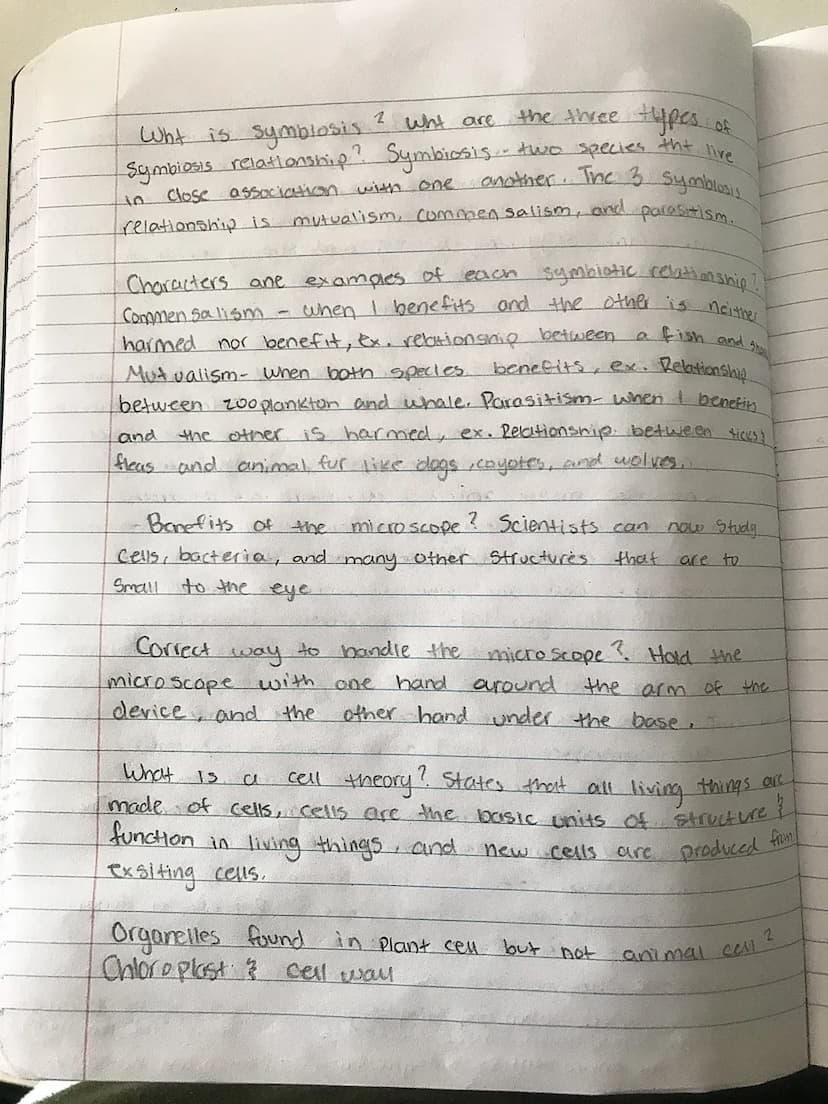 Wht is symbiosis? Wht are the three types of
Symbiosis relationship? Symbiosis - two species tht live
in close association with one another. The 3 symbiosis
relationship is mutualism, commensalism, and parasitism.
Characters ane examples of each symbiotic relationship?
Commensalism - when 1 benefits and the other is neither
harmed nor benefit, Ex. relationship between a fish and
Mutualism- when both species benefits, ex. Relationship
between zooplankton and whale. Parasitism- when 1 benefits
and the other is harmed, ex. Relationship between ticks &
fleas and animal fur like dogs, coyotes, and wolves.
Benefits of the microscope? Scientists can now study
Cells, bacteria, and many other structures that are to
Small to the eye
Correct way to handle the microscope? Hold the
microscope with one hand around the arm of the
device, and the other hand under the base.
What is a cell theory? States that all living things are
made of cells, cells are the basic units of structure &
function in living things, and new cells are produced from
exsiting cells.
Organelles found in plant cell but not animal cell?
Chloroplast & cell wall